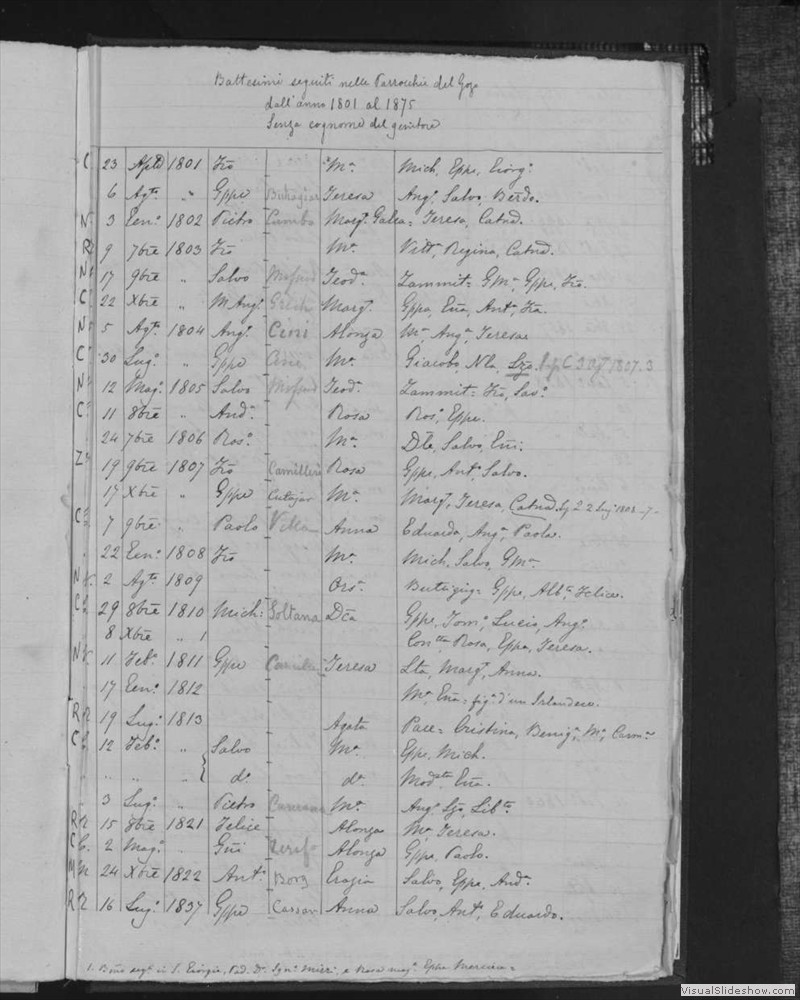 Battesimi seguiti nelle Parrocchie del Gozo
dall'anno 1801 al 1875
Senza cognome del genitore
C 23 Aple 1801 Fro Ma Mich, Eppe, Giorgo
6 Agto " Gppe Buhagiar Teresa Ango, Salvo, Berdo.
N 3 Geno 1802 Pietro Margta Galea = Teresa, Catna.
R 9 7bre 1803 Fro Ma Vitta, Regina, Catna.
N 17 9bre " Salvo Teoda Zammit = Gma, Gppe, Fro.
C 22 Xbre " M. Ango Grech Margta Gppa, Ena, Anto, Fra.
N 5 Agto 1804 Ango Cini Alonza Ma, Anga, Teresa
C 30 Lugo " Gppe Cini Ma Giacobo, Nla, Lza, 1807. 3
N 12 Mago 1805 Salvo Teoda Zammit = Fro, Savo
C 11 8bre " Anda Rosa Roso, Eppe.
24 7bre 1806 Roso Ma Dle, Salvo, Eni.
Z 19 9bre 1807 Fro Camilleri Rosa Gppe, Anto, Salvo.
17 Xbre " Gppe Cutajar Ma Margta, Teresa, Catna. 22 1808
C 7 9bre " Paolo Vella Anna Eduardo, Anga, Paola.
22 Geno 1808 Fro Ma Mich, Salvo, Gma.
N 2 Agto 1809 Orsa Buttigieg = Gppe, Alba, Felice.
C 29 8bre 1810 Mich: Soltana Dca Gppe, Tomo, Lucia, Ango.
8 Xbre " 1 Concta, Rosa, Eppa, Teresa.
N 11 Febo 1811 Gppe Teresa Lta, Margta, Anna.
17 Geno 1812 Ma, Ena = figa d'un Irlandese.
R 19 Lugo 1813 Agata Pace = Cristina, Beniga, Ma, Carma
C 12 Febo " Salvo Ma Eppe, Mich.
" " " do da Modta, Ena.
3 Lugo " Pietro Caruana Ma Ango, Lzo, Libto.
R 15 8bre 1821 Felice Alonza Ma, Teresa.
C 2 Mago " Gni Alonza Gppe, Paolo.
M 24 Xbre 1822 Anto Borg Grazia Salvo, Eppe, Anda.
R 16 Lugo 1837 Gppe Cassar Anna Salvo, Anto, Eduardo.
1. in S. Giorgio, e Rosa Eppe Mercieca =
VisualSlideshow.com